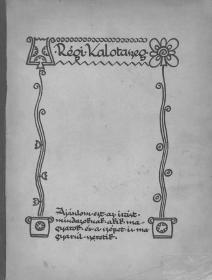 Régi Kalotaszeg
Ajánlom ezt az írást
mindazoknak akik ma-
gyarok és a szépet is ma-
gyarul szeretik.